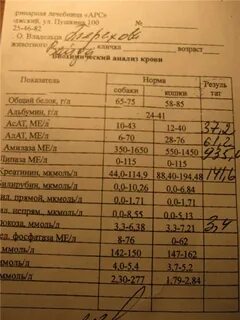 ринарная лечебница «АРС»
ул. Пушкина 100
25-46-82
О. Владельца
животного кличка возраст
Биохимический анализ крови
Показатель Норма Резуль
собаки кошки тат
Общий белок, г/л 65-75 58-85
Альбумин, г/л 24-41
АсАТ, МЕ/л 10-43 12-40 37,2
АлАТ, МЕ/л 6-70 28-76 61,2
Амилаза МЕ/л 350-1650 550-1450 935,0
Липаза МЕ/л 0-115 0-115
реатинин, мкмоль/л 44,0-114,9 88,40-194,48 141,6
илирубин, мкмоль/л 0,0-10,26 0,0-6.84
ил. прямой, мкмоль/л 0,0-1,71 0,0-1.71
ил. непрям., мкмоль/л 0,0-8,55 0,0-5.13
юкоза, ммоль/л 3,3-6,38 3.3-7.21 3,4
ел. фосфатаза МЕ/л 8-76 0-62
ммоль/л 142-150 147-162
ммоль/л 4.0-5.4 3.7-5.2
ммоль/л 2,30-277 1.79-2.84